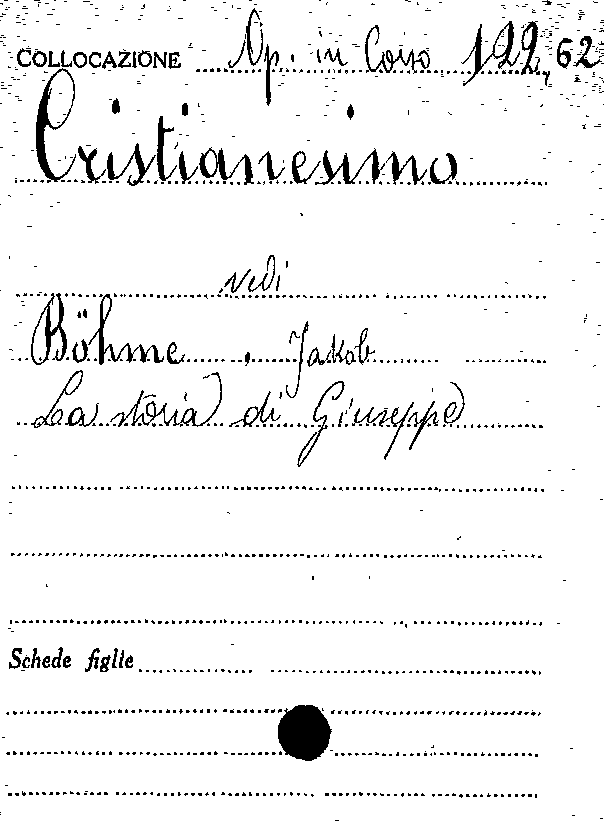 COLLOCAZIONE Op. in Corso 122,62
Cristianesimo
vedi
Böhme, Jakob
La storia di Giuseppe
Schede figlie